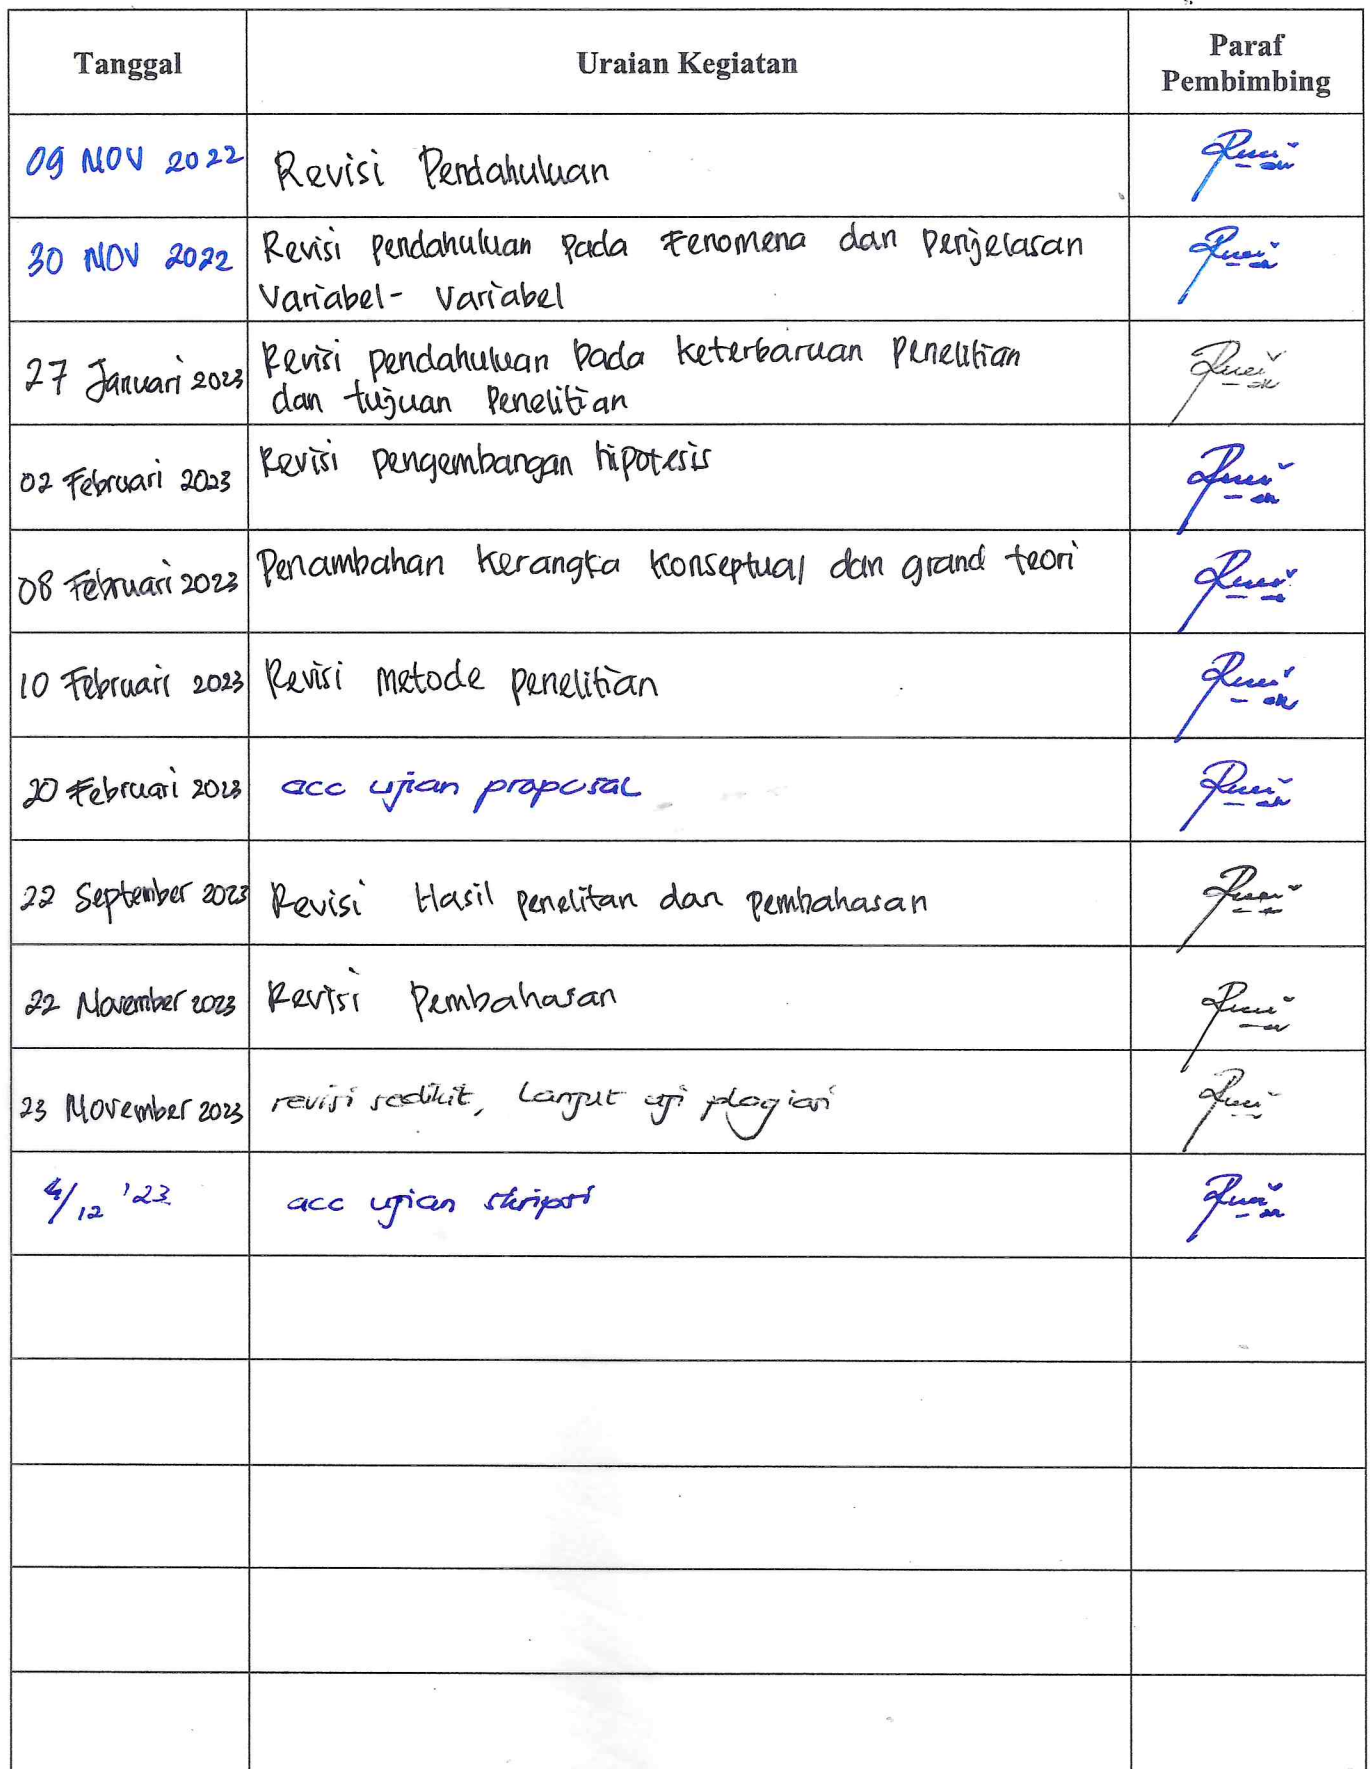 Tanggal
Uraian Kegiatan
Paraf
Pembimbing
09 NOV 2022
Revisi Pendahuluan
30 NOV 2022
Revisi pendahuluan pada Fenomena dan penjelasan
Variabel- Variabel
27 Januari 2023
Revisi pendahuluan pada keterbaruan penelitian
dan tujuan Penelitian
02 Februari 2023
Revisi pengembangan hipotesis
08 Februari 2023
Penambahan kerangka konseptual dan grand teori
10 Februari 2023
Revisi metode penelitian
20 Februari 2023
acc ujian proposal
22 September 2023
Revisi Hasil penelitan dan pembahasan
22 November 2023
Revisi Pembahasan
23 November 2023
revisi sedikit, lanjut uji plagiasi
4/12 '23
acc ujian skripsi